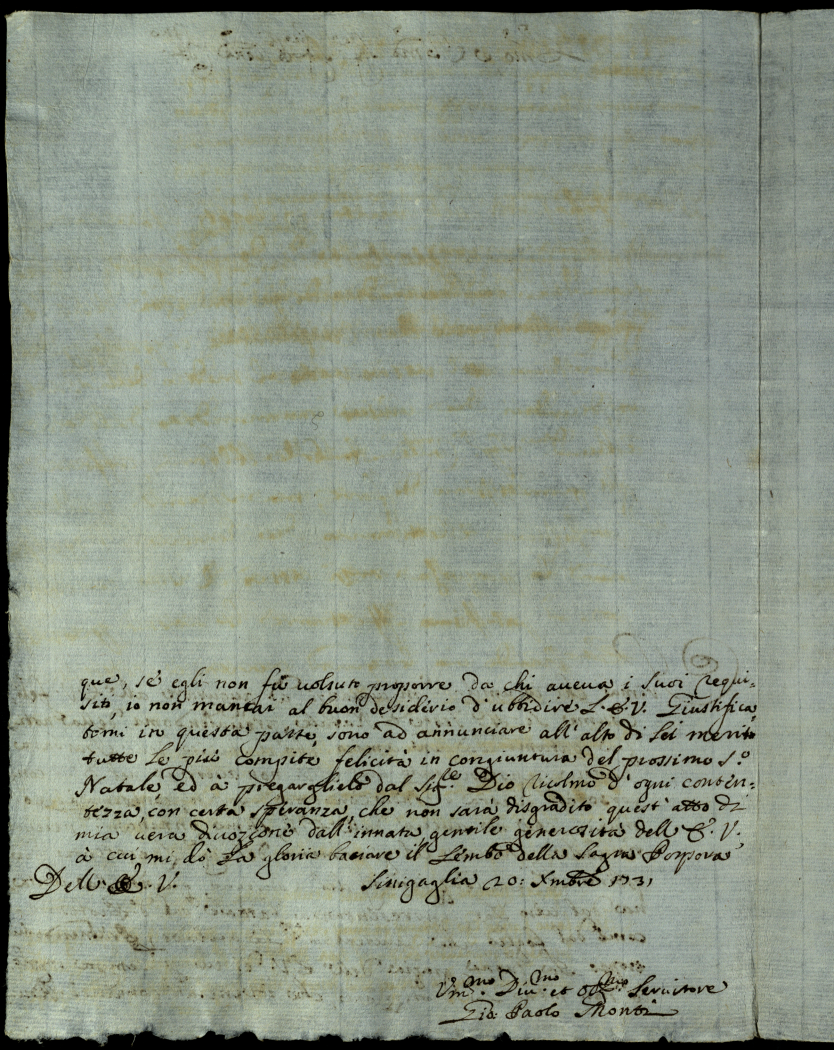 que, sè egli non fù volsuto proporre da chi aveva i suoi requi-
siti, io non mancai al buon desiderio d'ubbidire L.E.V. Giustifica
tomi in questa parte, sono ad annunciare all'alto di Lei merito
tutte le più compite felicità in congiuntura del prossimo S.º
Natale, ed à pregarglielo dal Sig.re Dio ricolmo d'ogni conten-
tezza, con certa speranza, che non sarà disgradito quest'atto di
mia vera divozione dall'innata gentile generosità dell'E.V.
à cui mi dò la gloria baciare il Lembo della Sagra Porpora
Dell'E.V. Sinigaglia 20: Xmbre 1731
Vm.mo Div.mo et Obl.mo Servitore
Gio: Paolo Monti